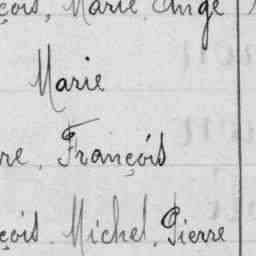 çois, Marie Ange
Marie
re, François
çois, Michel, Pierre